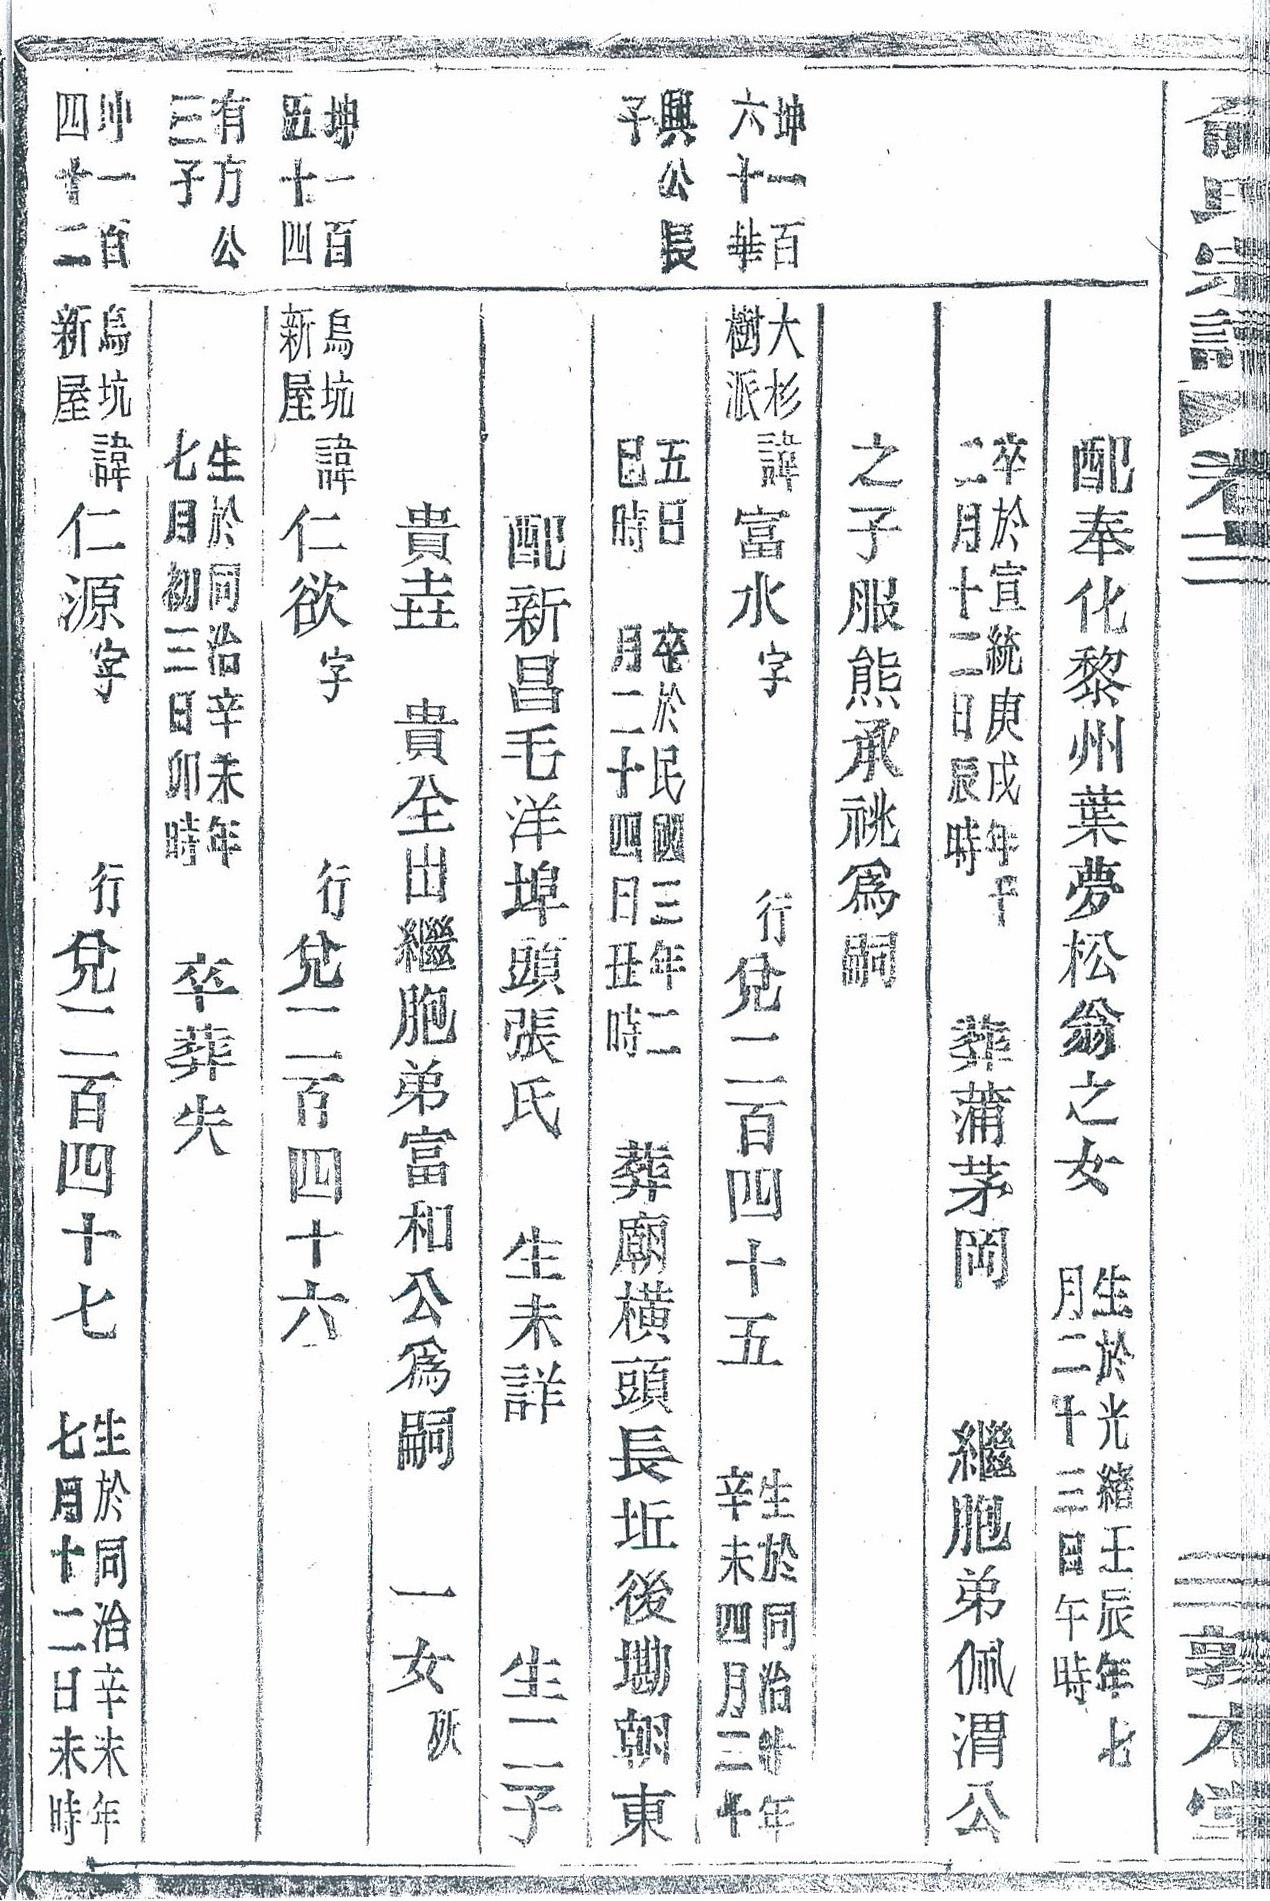 俞氏宗譜 卷二 敦本堂
配奉化黎州葉夢松翁之女 生於光緒壬辰年七
月二十三日午時
卒於宣統庚戌年十
二月十二日辰時 葬蒲茅岡 繼胞弟佩渭公
之子服熊承祧爲嗣
坤一百
六十華
大杉
樹派 諱富水字 行兌二百四十五 生於同治十年
辛未四月二十
興公長
子
五日
巳時 卒於民國三年二
月二十四日丑時 葬廟橫頭長坵後墈朝東
配新昌毛洋埠頭張氏 生未詳 生二子
貴垚 貴全出繼胞弟富和公爲嗣 一女
坤一百
五十四
烏坑
新屋 諱仁欲字 行兌二百四十六
有方公
三子
生於同治辛未年
七月初三日卯時 卒葬失
坤一百
四十二
烏坑
新屋 諱仁源字 行兌二百四十七 生於同治辛未年
七月十二日未時